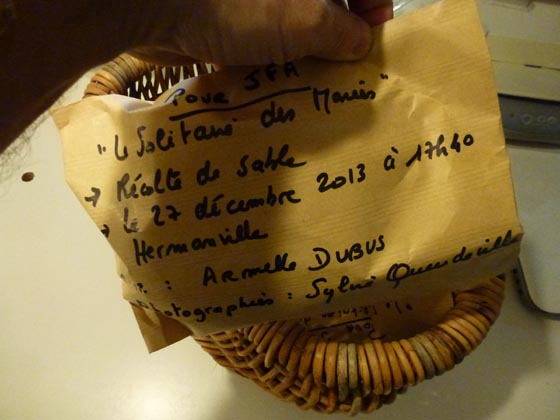 Pour JFA
"Le Solitaire des Marées"
→ Récolte de Sable
→ Le 27 décembre 2013 à 17h40
Hermanville
: Armelle DUBUS
photographies : Sylvie